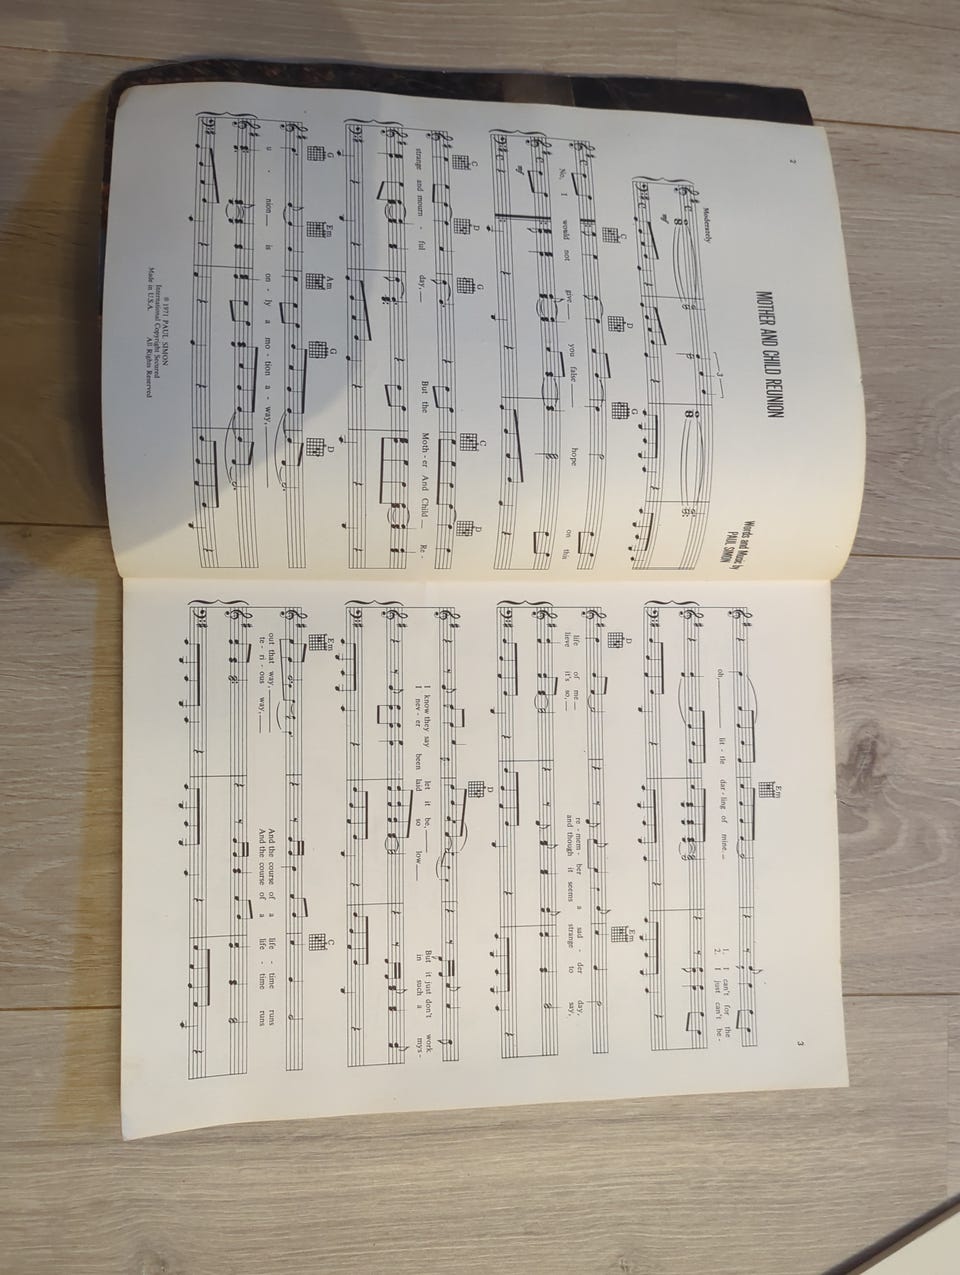 2
MOTHER AND CHILD REUNION
Words and Music by
PAUL SIMON
Moderately
mf
3
C D G
No, I would not give you false hope on this
mf
C D G C D
strange and mourn - ful day, But the Moth - er And Child Re -
G Em Am G D
u - nion is on - ly a mo - tion a - way,
© 1971 PAUL SIMON
International Copyright Secured All Rights Reserved
Made in U.S.A.
3
Em
oh, lit - tle dar - ling of mine. 1. I can't for the
2. I just can't be -
D Em
life of me re - mem - ber a sad - der day,
lieve it's so, and though it seems strange to say,
D
I know they say let it be, But it just don't work
I nev - er been laid so low in such a mys -
Em C
out that way, And the course of a life - time runs
te - ri - ous way, And the course of a life - time runs